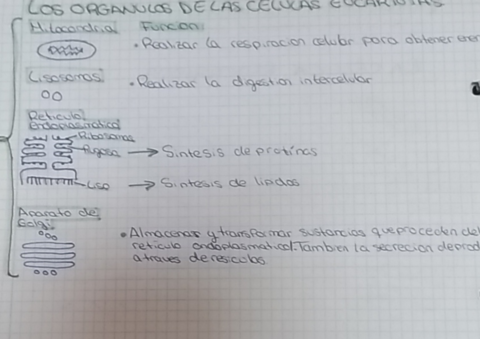 LOS ORGANULOS DE LAS CELULAS EUCARIOTAS
Mitocondria Funcion
• Realizar la respiracion celular para obtener ener
Lisosomas • Realizar la digestion intercelular
Reticulo
endoplasmatico
Ribosomas
Rugoso → Sintesis de protinas
Liso → Sintesis de lipidos
Aparato de
Golgi
• Almacenar y transformar sustancias que proceden del
reticulo endoplasmatico. Tambien la secrecion de prod
a traves de vesiculas